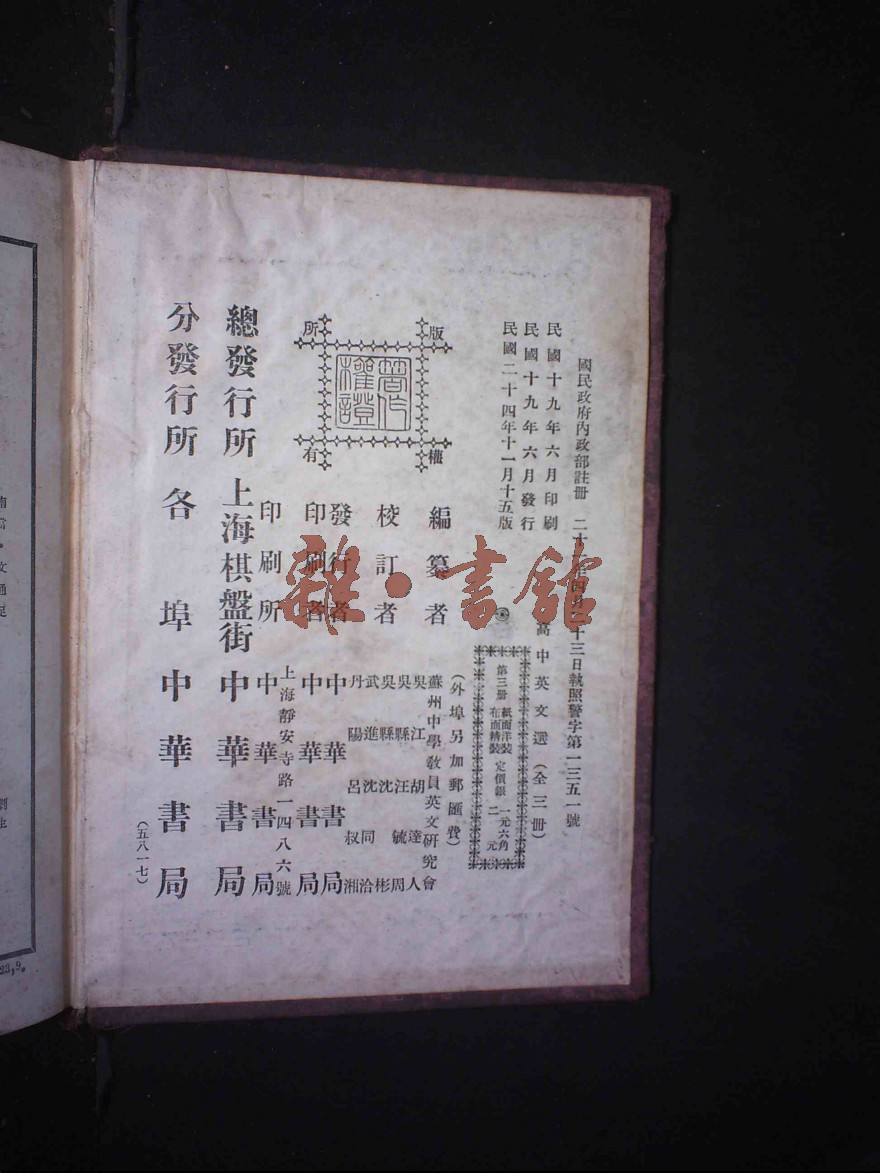 國民政府內政部註冊 二十一年四月二十三日執照警字第一三五一號
民國十九年六月印刷
民國十九年六月發行
民國二十四年十一月十五版
高中英文選(全三冊)
第三冊
紙面洋裝 定價銀 一元六角
布面精裝 二元
(外埠另加郵匯費)
版權所有
著作權證
編纂者 蘇州中學敎員英文硏究會
校訂者
吳江胡達人
吳縣汪毓周
吳縣沈彬
武進沈同洽
丹陽呂叔湘
發行者 中華書局
印刷者 中華書局
印刷所 上海靜安寺路一四八六號 中華書局
總發行所 上海棋盤街 中華書局
分發行所 各埠 中華書局
(五八一七)
雜·書館
23,9。